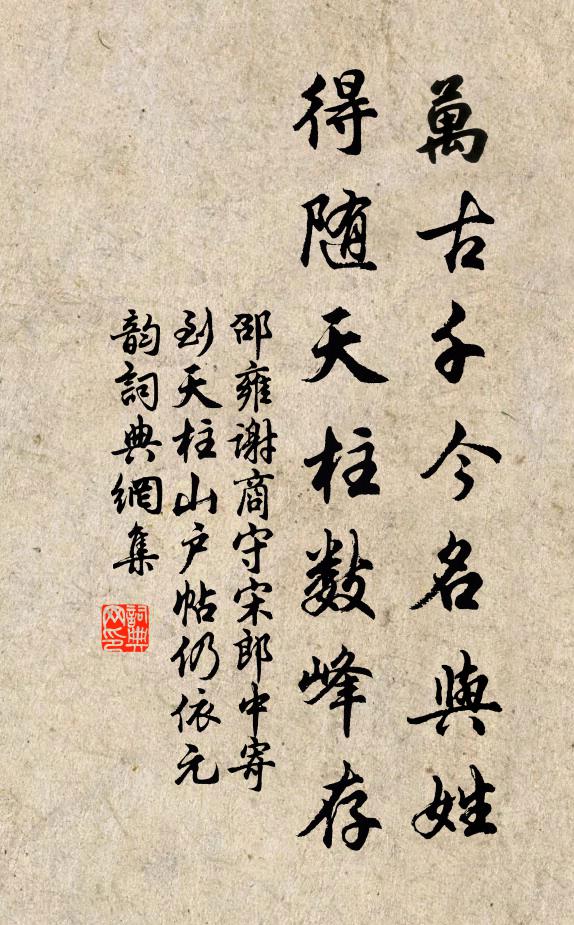 萬古千今名與姓
得随天柱数峰存
邵雍謝商守宋郎中寄
到天柱山户帖仍依元
韵詞典網集
詞典网印